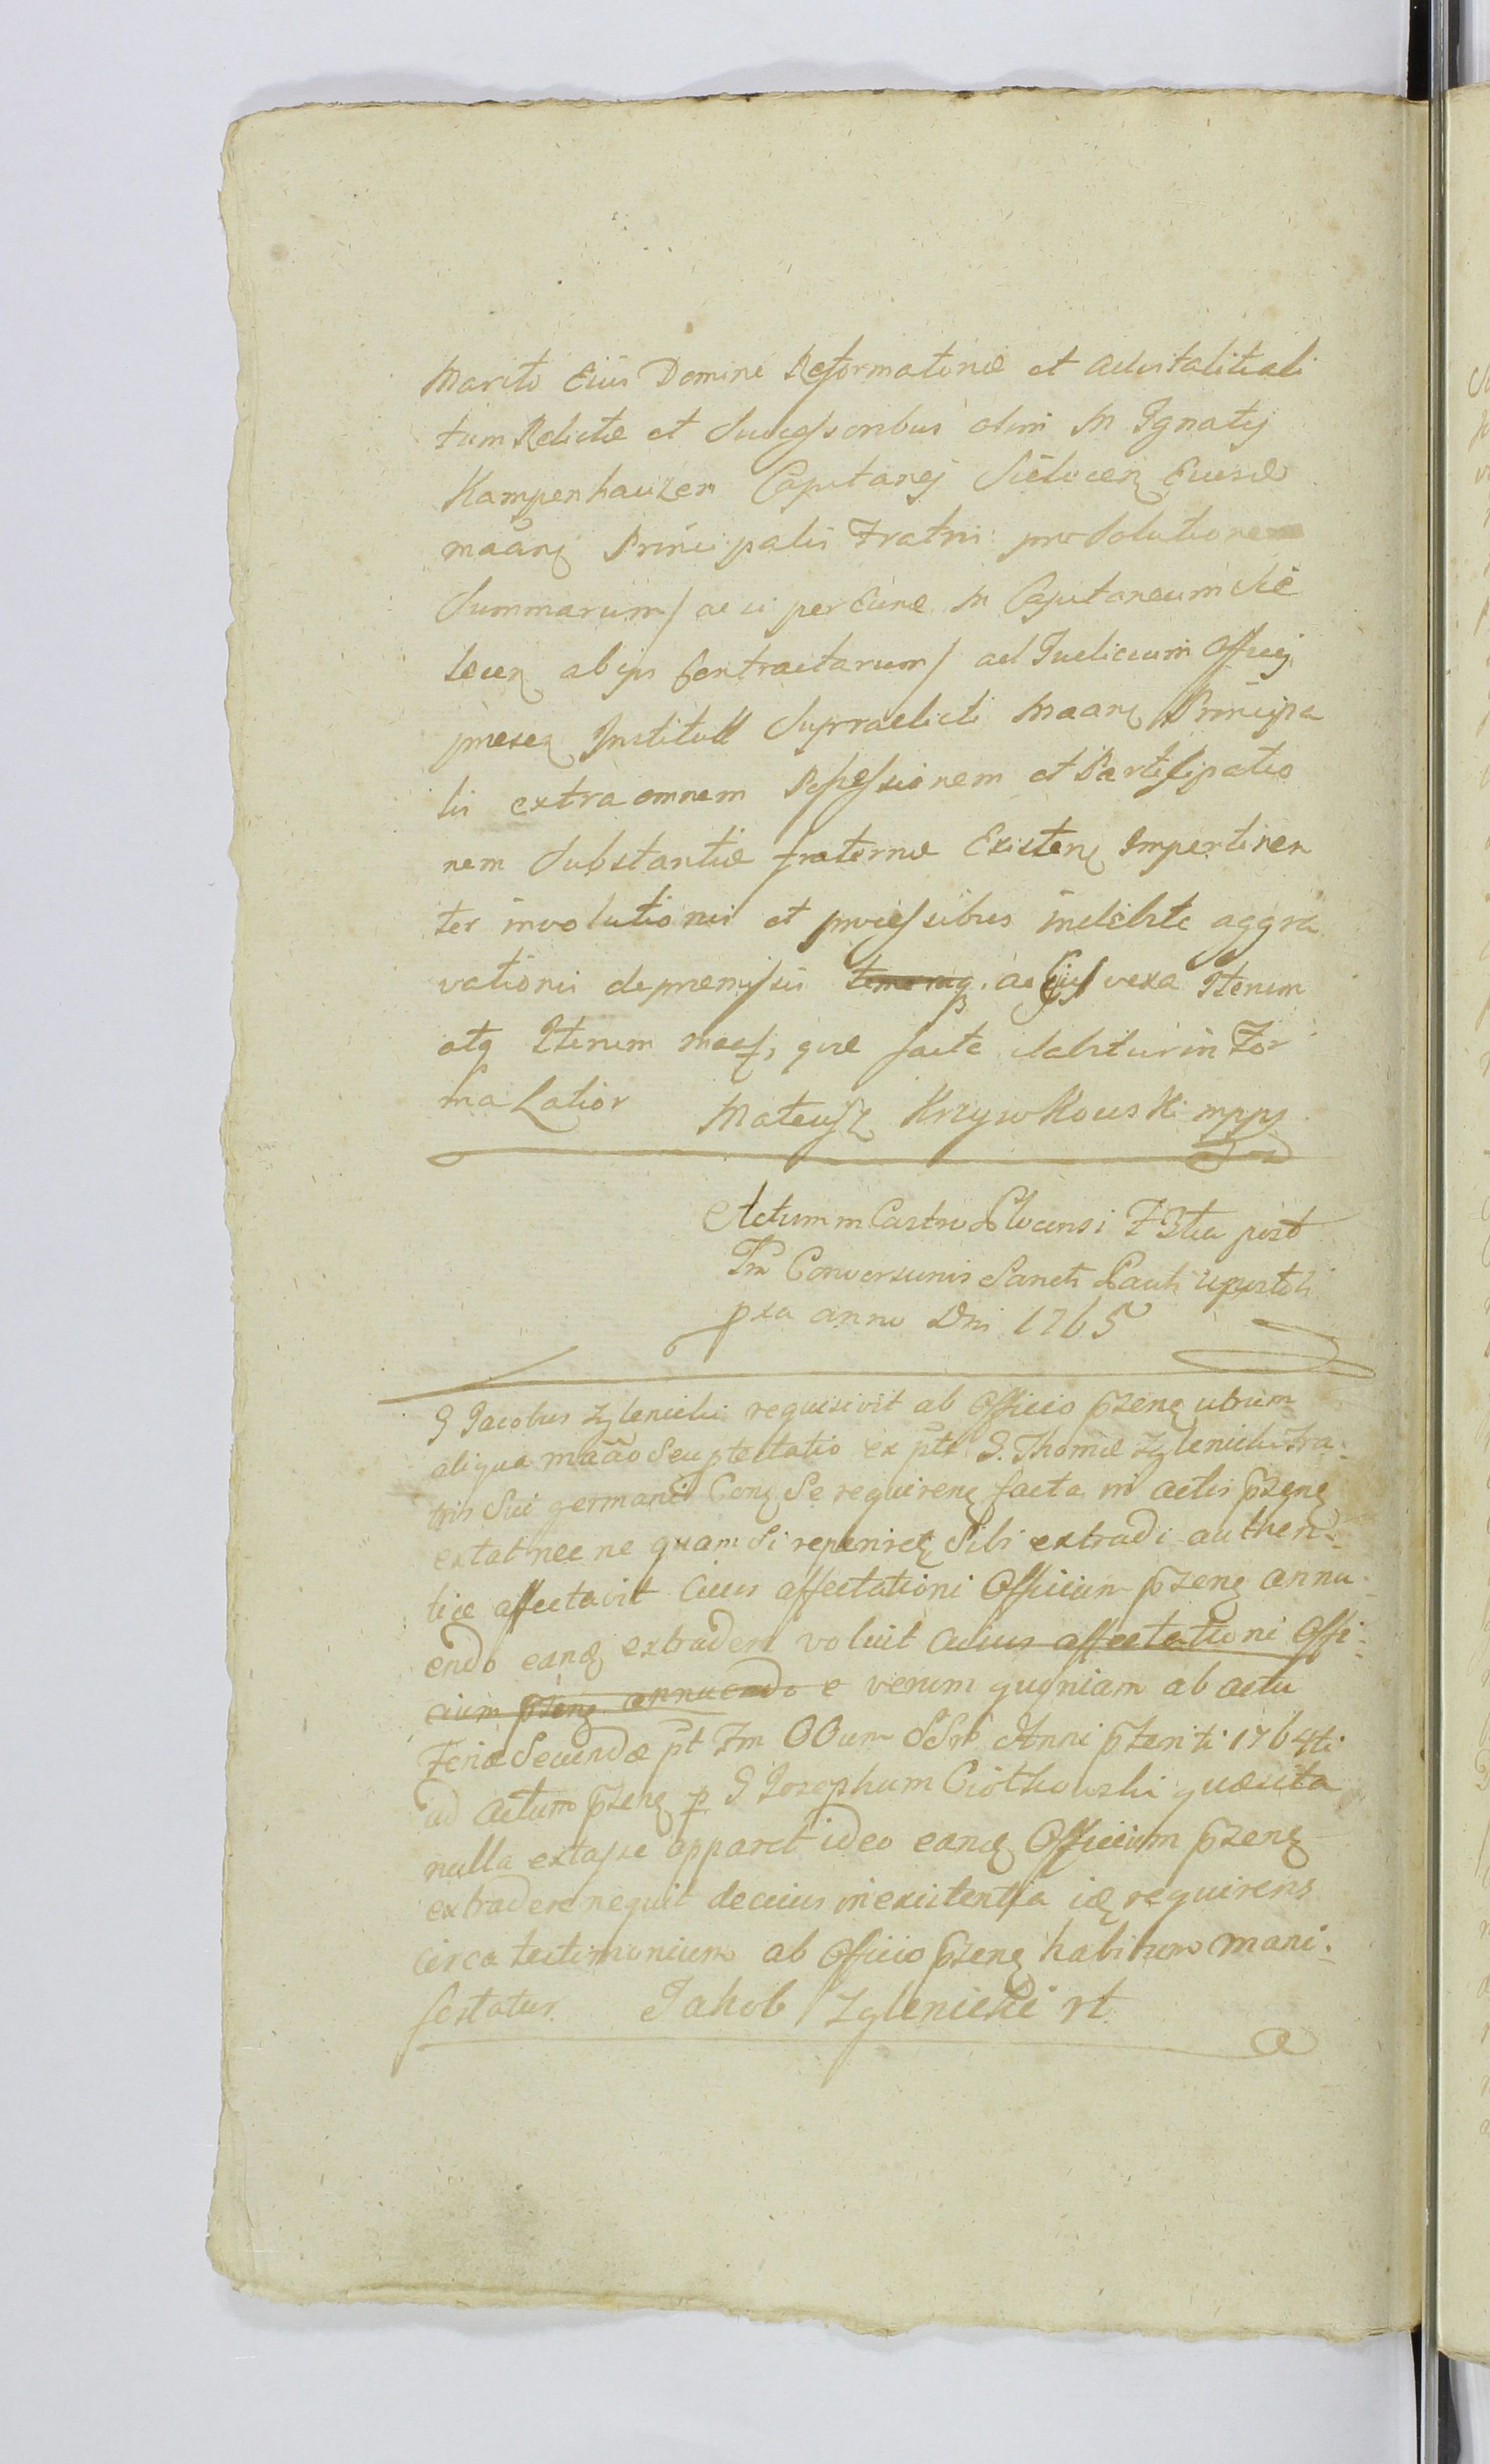 Marito Eius Domine Reformatoriæ et advitalitiali
tum Relictæ et Successoribus olim M Ignatij
Kampenhauzen Capitanej Sielucen Eiusd
maanẹ Principalis Fratri pro Solutione
Summarum / ac si per Eund M Capitaneum Sie
lucen ab ips Contractarum / ad Judicium Officij
presen Institutt Supradicti Maanẹ Principa
lis extra omnem Possessionem et Partisipatio
nem Substantiæ fraternæ Existenẹ Impertinen
ter involutionis et processibus indebite aggra
vationis de præmissis ac Ejus vexa Iterum
atq Iterum maes, quæ facta dabitur in For
ma Latior Mateusz Krzywkowski mpp
Actum in Castro Plocensi F 3tia post
Fm Conversionis Sancti Pauli Apostoli
pxa anno Dni 1765
G Jacobus Zglenicki requisivit ab Officio pñzenẹ utrum
aliqua maao Seu ptestatio ex pte G. Thomæ Zglenicki Fra-
tris Sui germani Conẹ Se requirenẹ facta in actis pñzenẹ
extat nec ne quam Si reperiretẹ Sibi extradi authen-
tice affectavit Cuius affectationi Officium pñzenẹ annu-
endo eandẹ extradere voluit cuius affectationi Offi-
cium pñzenẹ annuendo e verum quoniam ab actu
Feriæ Secundæ pt Fm OOum SSrū Anni pñteriti 1764ti
ad actum pñzenẹ p G Josephum Ciółkowski quæsita
nulla extasse apparet ideo eandẹ Officium pñzenẹ
extradere nequit de cuius inexistentia idẹ requirens
circa testimonium ab Officio pñzenẹ habitum mani-
festatur. Jakob Zglenicki rt